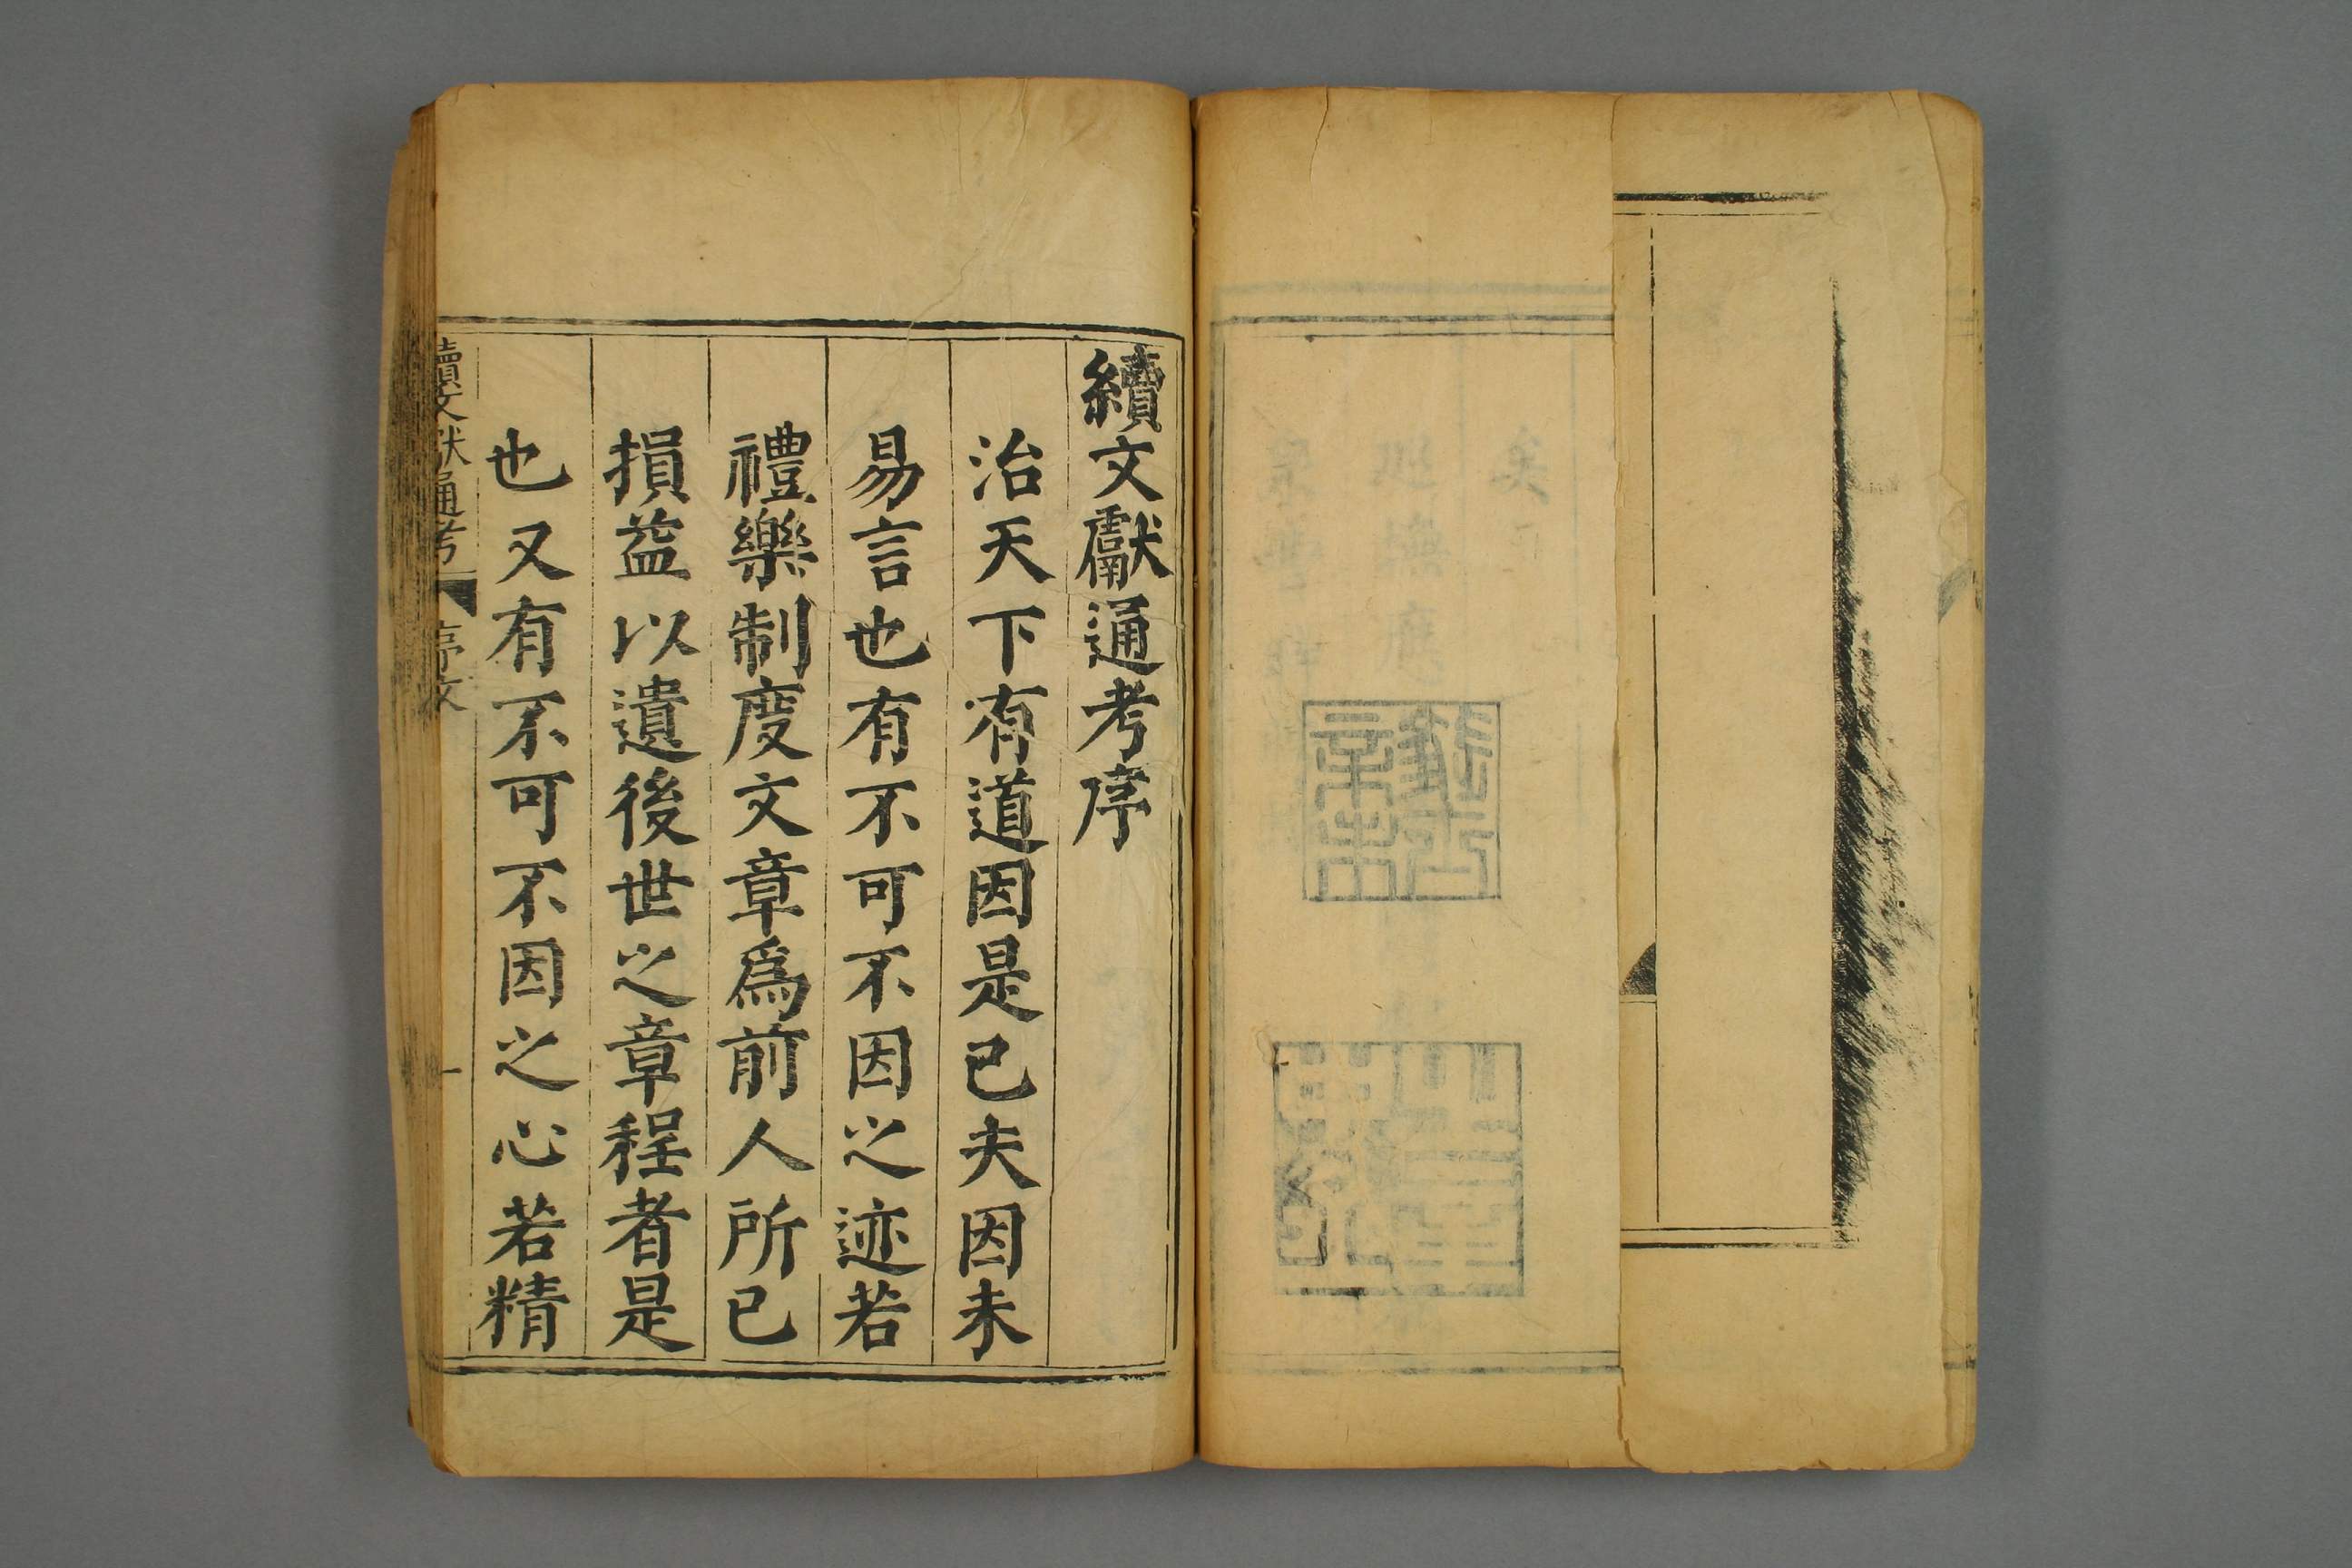 續文獻通考序
治天下有道因是已夫因未
易言也有不可不因之迹若
禮樂制度文章爲前人所已
損益以遺後世之章程者是
也又有不可不因之心若精
續文獻通考 序文 一